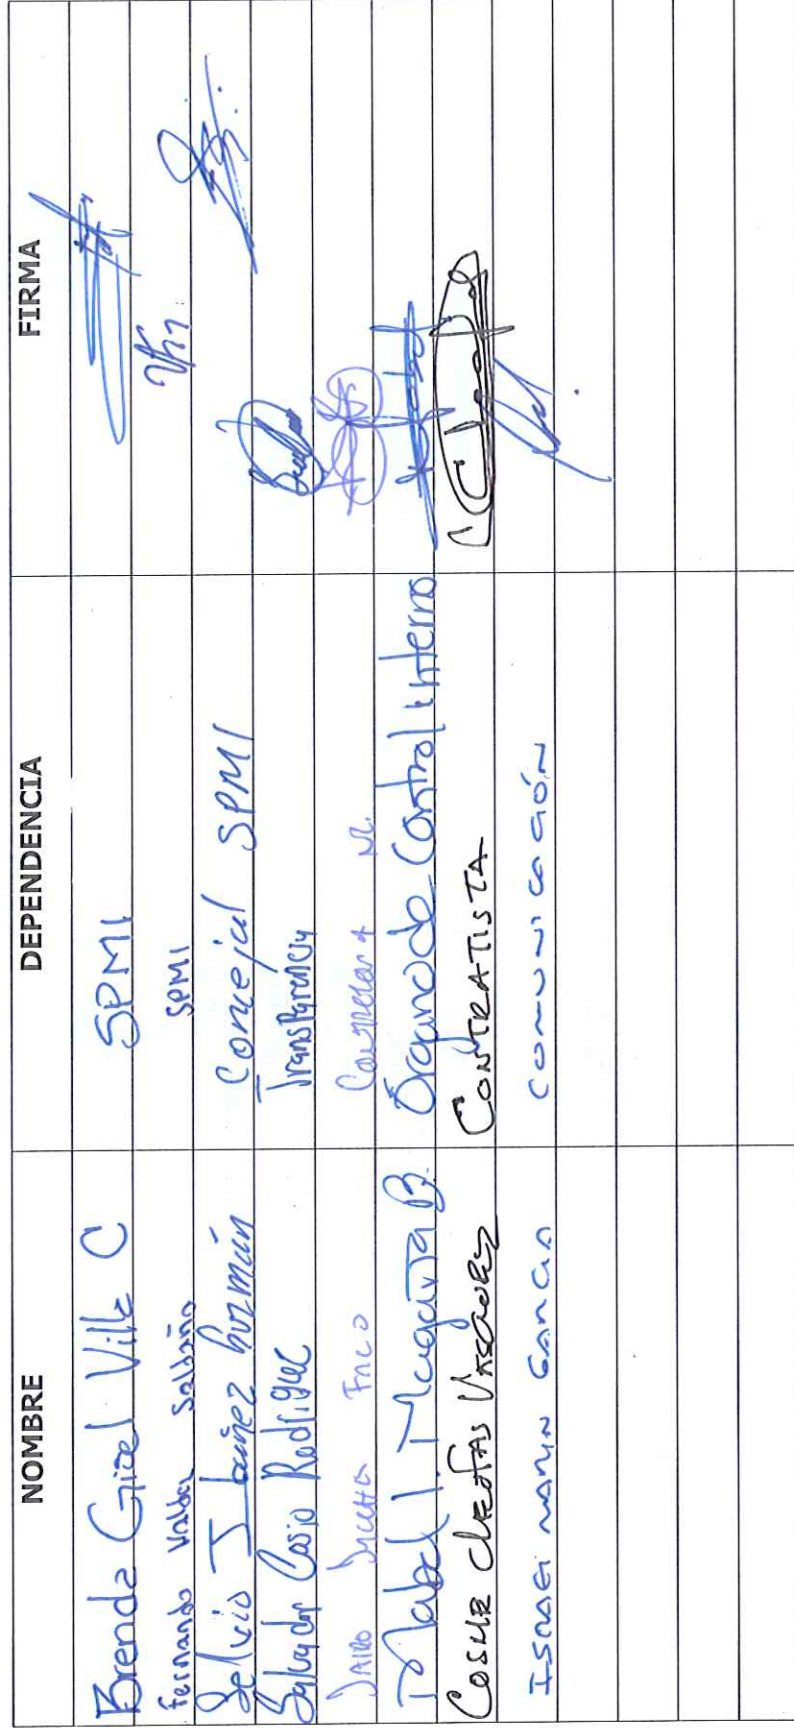 NOMBRE DEPENDENCIA FIRMA
Brenda Gisel Villa C SPMI
Fernando Valdez Saldaña SPMI
Selvio Ibañez Guzmán Concejal SPMI
Salvador Casio Rodríguez Transparencia
JAIRO
Mabel I. Mugarta B. Órgano de Control interno
COSME CLEOFAS CONTRATISTA
ISRAEL MARIN GARCIA COMUNICACIÓN